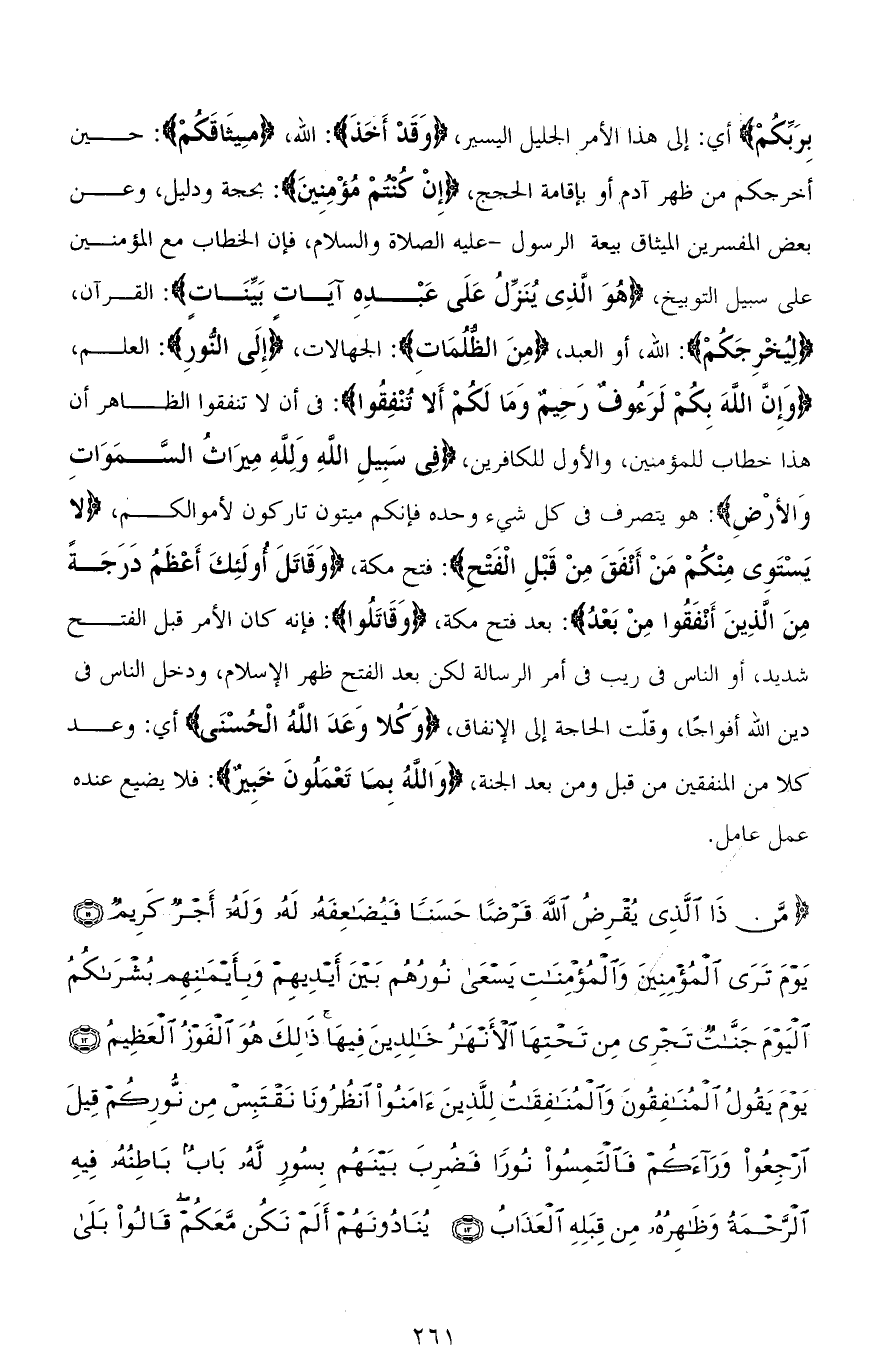 بِرَبِّكُمْ﴾ أي: إلى هذا الأمر الجليل اليسير، ﴿وَقَدْ أَخَذَ﴾: الله، ﴿مِيثَاقَكُمْ﴾: حـــين
أخرجكم من ظهر آدم أو بإقامة الحجج، ﴿إِنْ كُنْتُمْ مُؤْمِنِينَ﴾: بحجة ودليل، وعـــن
بعض المفسرين الميثاق بيعة الرسول -عليه الصلاة والسلام، فإن الخطاب مع المؤمنـــين
على سبيل التوبيخ، ﴿هُوَ الَّذِى يُنَزِّلُ عَلَى عَبْـــدِهِ آيَـــاتٍ بَيِّنَـــاتٍ﴾: القـــرآن،
﴿لِيُخْرِجَكُمْ﴾: الله، أو العبد، ﴿مِنَ الظُّلُمَاتِ﴾: الجهالات، ﴿إِلَى النُّورِ﴾: العلـــم،
﴿وَإِنَّ اللَّهَ بِكُمْ لَرَءُوفٌ رَحِيمٌ وَمَا لَكُمْ أَلا تُنْفِقُوا﴾: فى أن لا تنفقوا الظـــاهر أن
هذا خطاب للمؤمنين، والأول للكافرين، ﴿فِى سَبِيلِ اللَّهِ وَلِلَّهِ مِيرَاثُ السَّـــمَوَاتِ
وَالأرْضِ﴾: هو يتصرف فى كل شيء وحده فإنكم ميتون تاركون لأموالكـــم، ﴿لا
يَسْتَوِى مِنْكُمْ مَنْ أَنْفَقَ مِنْ قَبْلِ الْفَتْحِ﴾: فتح مكة، ﴿وَقَاتَلَ أُولَئِكَ أَعْظَمُ دَرَجَـــةً
مِنَ الَّذِينَ أَنْفَقُوا مِنْ بَعْدُ﴾: بعد فتح مكة، ﴿وَقَاتَلُوا﴾: فإنه كان الأمر قبل الفتـــح
شديد، أو الناس فى ريب فى أمر الرسالة لكن بعد الفتح ظهر الإسلام، ودخل الناس فى
دين الله أفواجًا، وقلّت الحاجة إلى الإنفاق، ﴿وَكُلا وَعَدَ اللَّهُ الْحُسْنَى﴾ أي: وعـــد
كلا من المنفقين من قبل ومن بعد الجنة، ﴿وَاللَّهُ بِمَا تَعْمَلُونَ خَبِيرٌ﴾: فلا يضيع عنده
عمل عامل.
﴿مَّن ذَا ٱلَّذِى يُقْرِضُ ٱللَّهَ قَرْضًا حَسَنًا فَيُضَٰعِفَهُۥ لَهُۥ وَلَهُۥٓ أَجْرٌ كَرِيمٌ ⑪
يَوْمَ تَرَى ٱلْمُؤْمِنِينَ وَٱلْمُؤْمِنَٰتِ يَسْعَىٰ نُورُهُم بَيْنَ أَيْدِيهِمْ وَبِأَيْمَٰنِهِم بُشْرَىٰكُمُ
ٱلْيَوْمَ جَنَّٰتٌ تَجْرِى مِن تَحْتِهَا ٱلْأَنْهَٰرُ خَٰلِدِينَ فِيهَا ۚ ذَٰلِكَ هُوَ ٱلْفَوْزُ ٱلْعَظِيمُ ⑫
يَوْمَ يَقُولُ ٱلْمُنَٰفِقُونَ وَٱلْمُنَٰفِقَٰتُ لِلَّذِينَ ءَامَنُوا۟ ٱنظُرُونَا نَقْتَبِسْ مِن نُّورِكُمْ قِيلَ
ٱرْجِعُوا۟ وَرَآءَكُمْ فَٱلْتَمِسُوا۟ نُورًا فَضُرِبَ بَيْنَهُم بِسُورٍ لَّهُۥ بَابٌۢ بَاطِنُهُۥ فِيهِ
ٱلرَّحْمَةُ وَظَٰهِرُهُۥ مِن قِبَلِهِ ٱلْعَذَابُ ⑬ يُنَادُونَهُمْ أَلَمْ نَكُن مَّعَكُمْ ۖ قَالُوا۟ بَلَىٰ
٢٦١